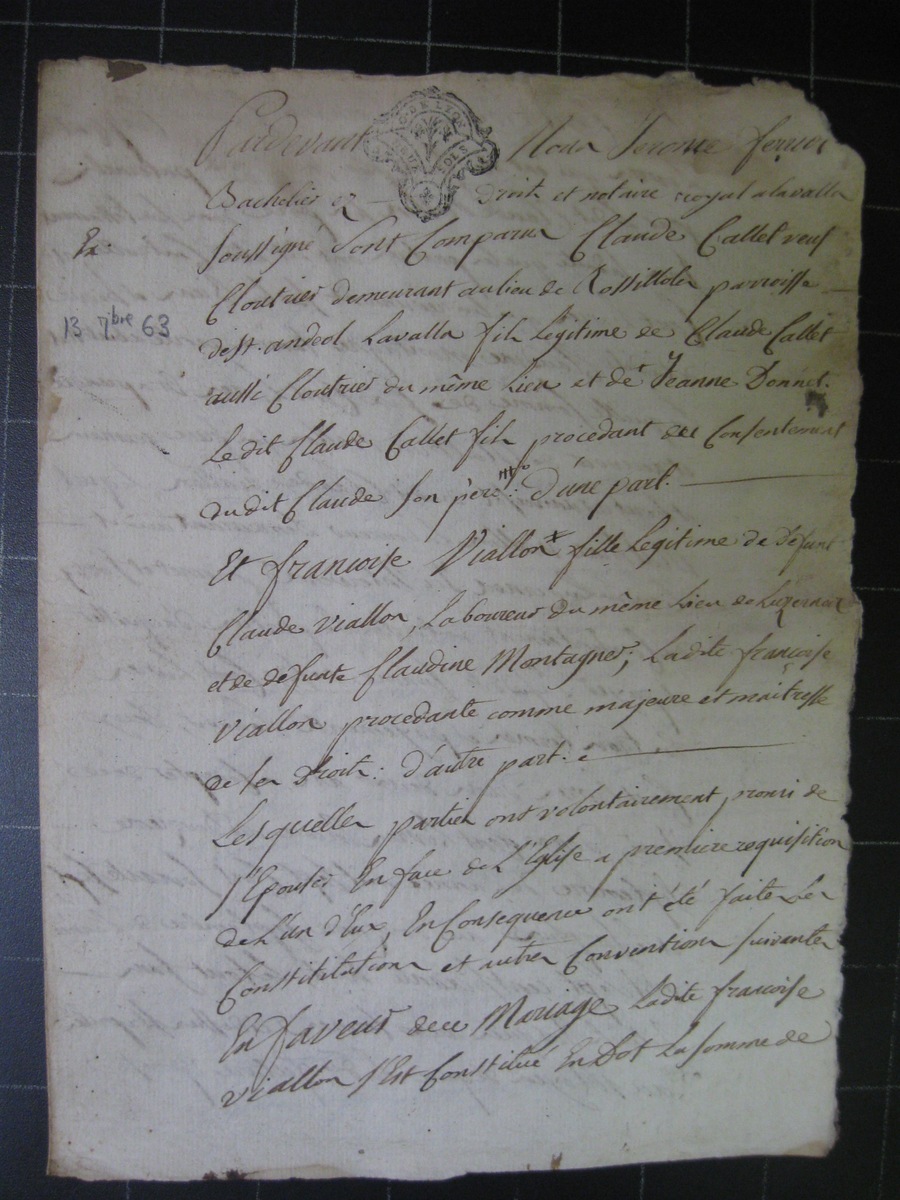 Pardevant Nous Jerome ferrier
G. DE LYON
DEUX SOLS
Bachelier ez droit et notaire royal a lavalla
Ex.
soussigné sont Comparus Claude Callet veuf
Cloutrier demeurant au lieu de Rossilliole parroisse
13 7bre 63
de st. andeol Lavalla fils Legitime de Claude Callet
aussi Cloutrier du même Lieu et de Jeanne Donnet.
Le dit Claude Callet fils procedant du Consentement
du dit Claude son père: d'une part.
Et francoise Viallon fille Legitime de defunt
Claude viallon, Laboureur du même Lieu de Luzernaux
et de defunte Claudine Montagner; Ladite francoise
Viallon procedante comme majeure et maitresse
de ses Droits: d'autre part.
Lesquelles parties ont volontairement promis de
s'Epouser En face de L'Eglise a premiere requisition
de L'un d'Eux, En Consequence ont été faites Les
Constitutions et autres Conventions suivantes
En faveur de ce Mariage Ladite francoise
viallon s'Est Constitué En Dot La somme de